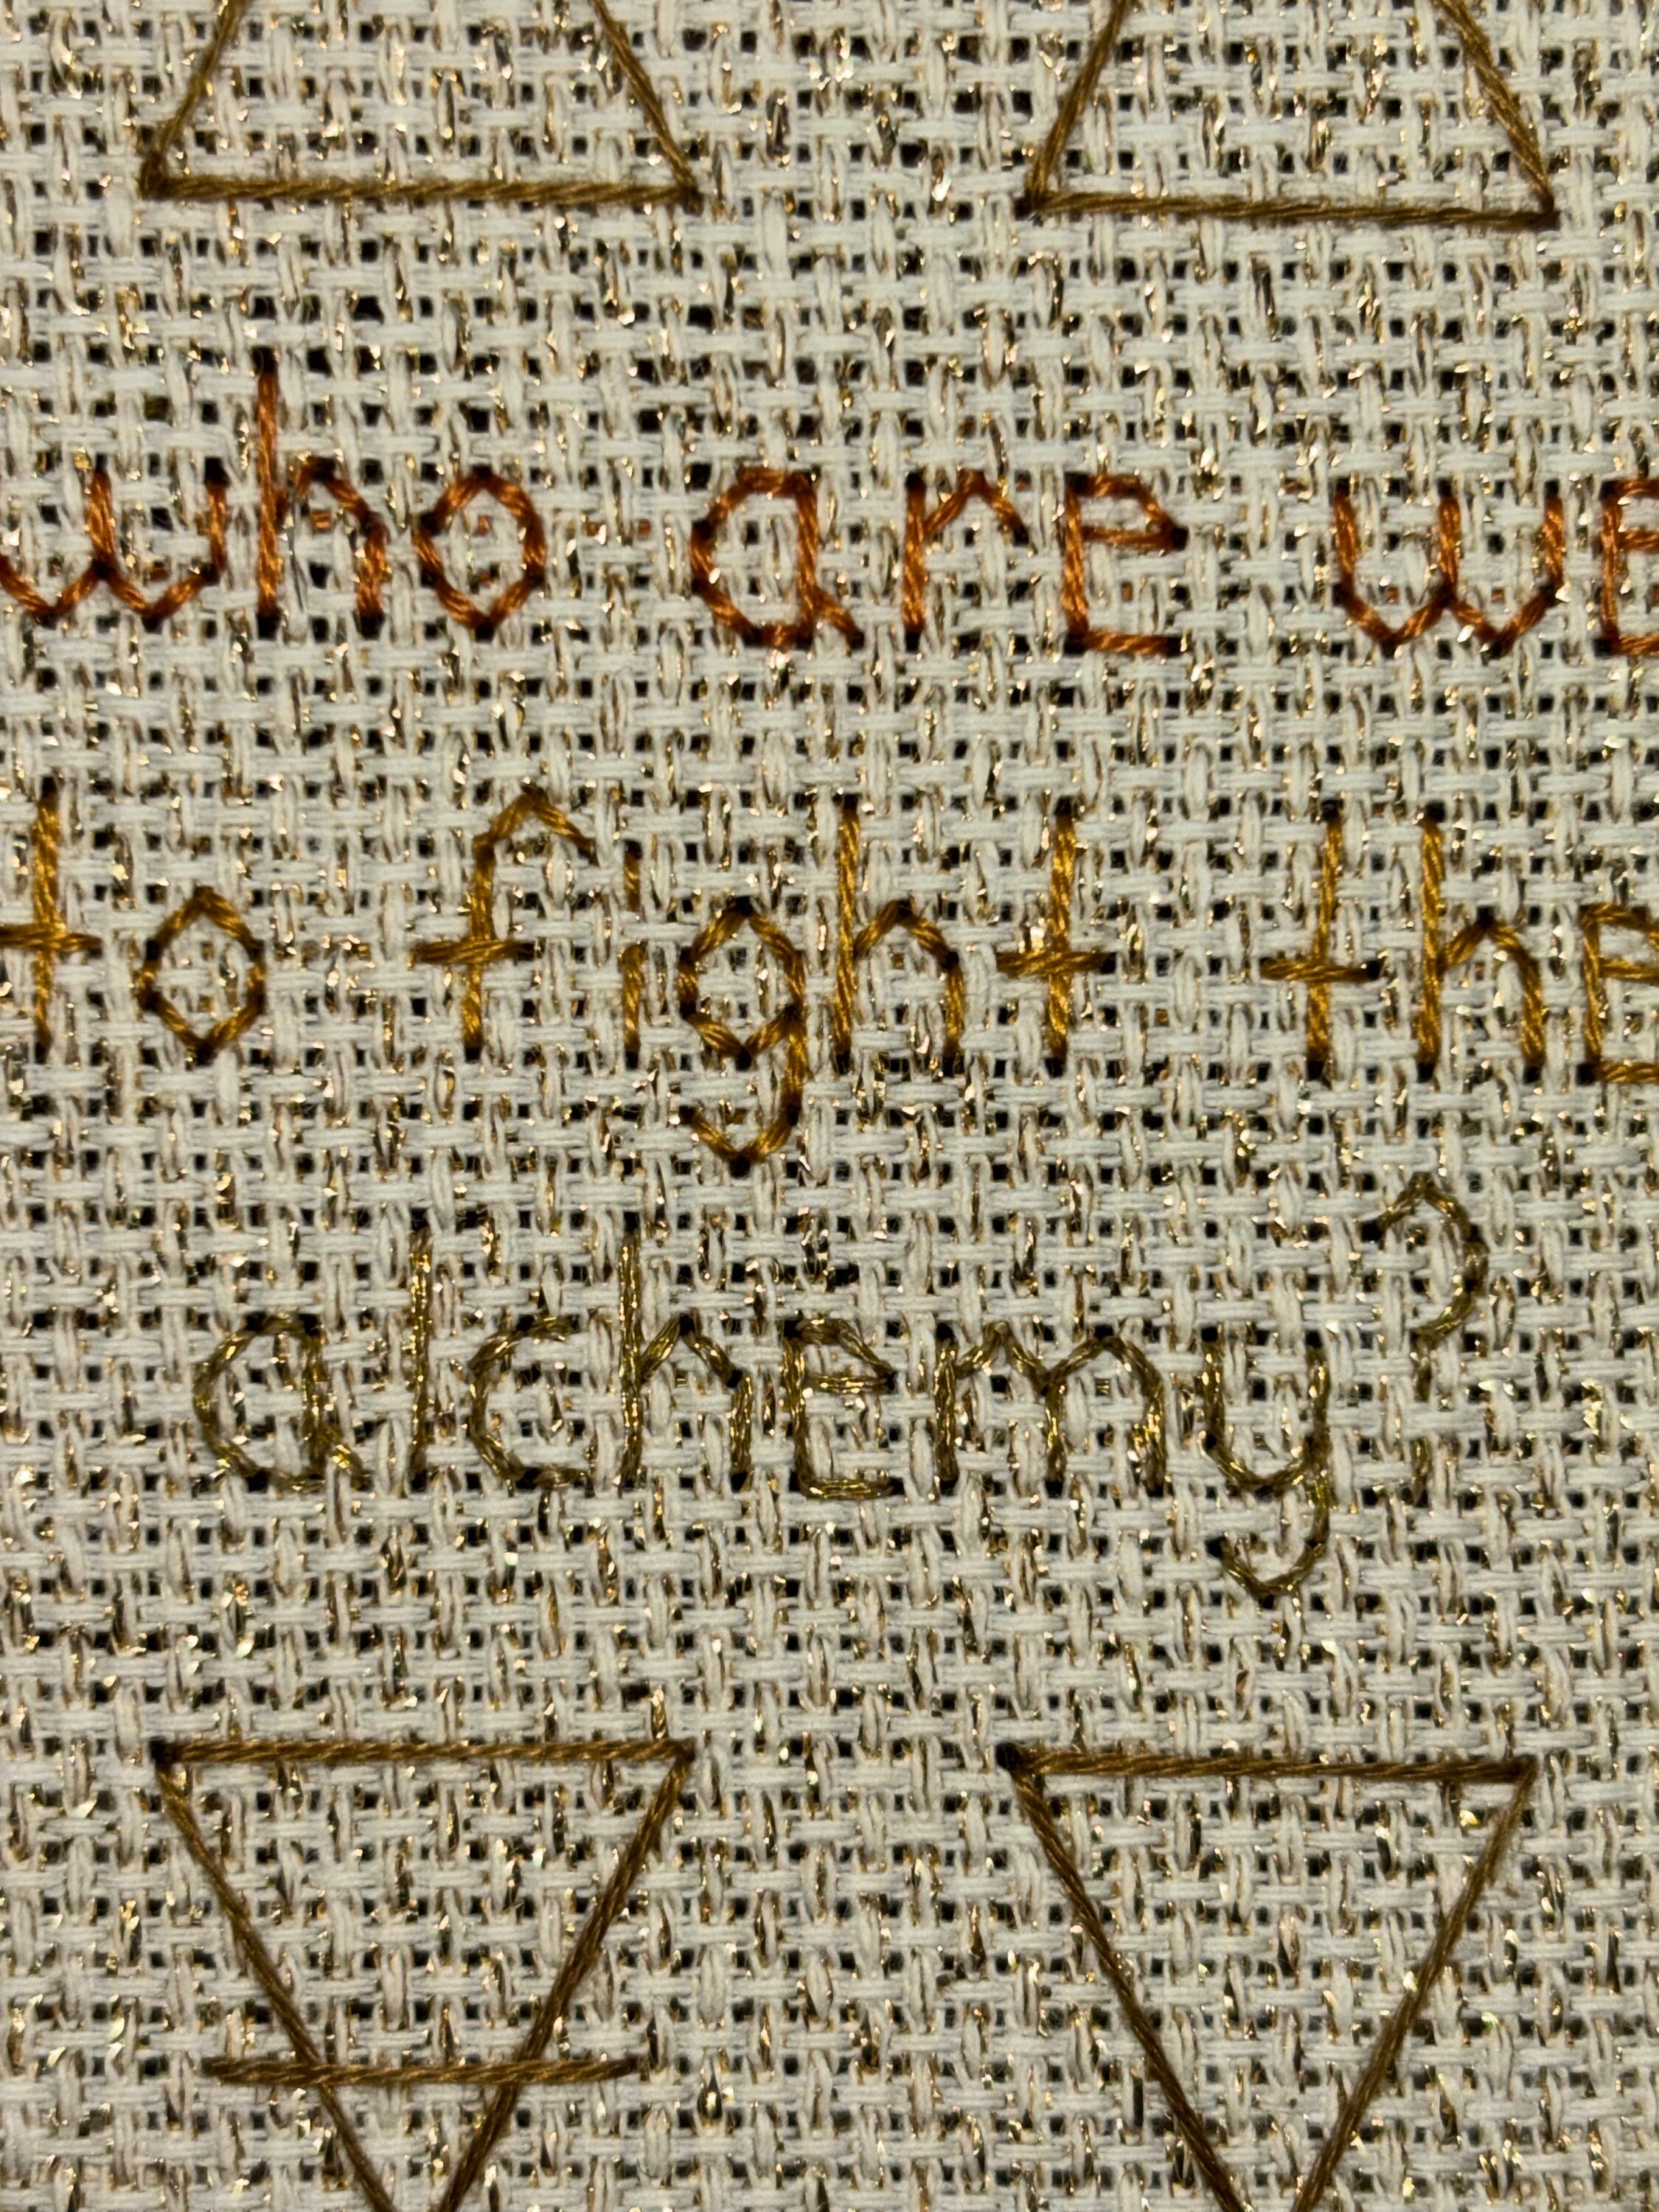 who are we
to fight the
alchemy?